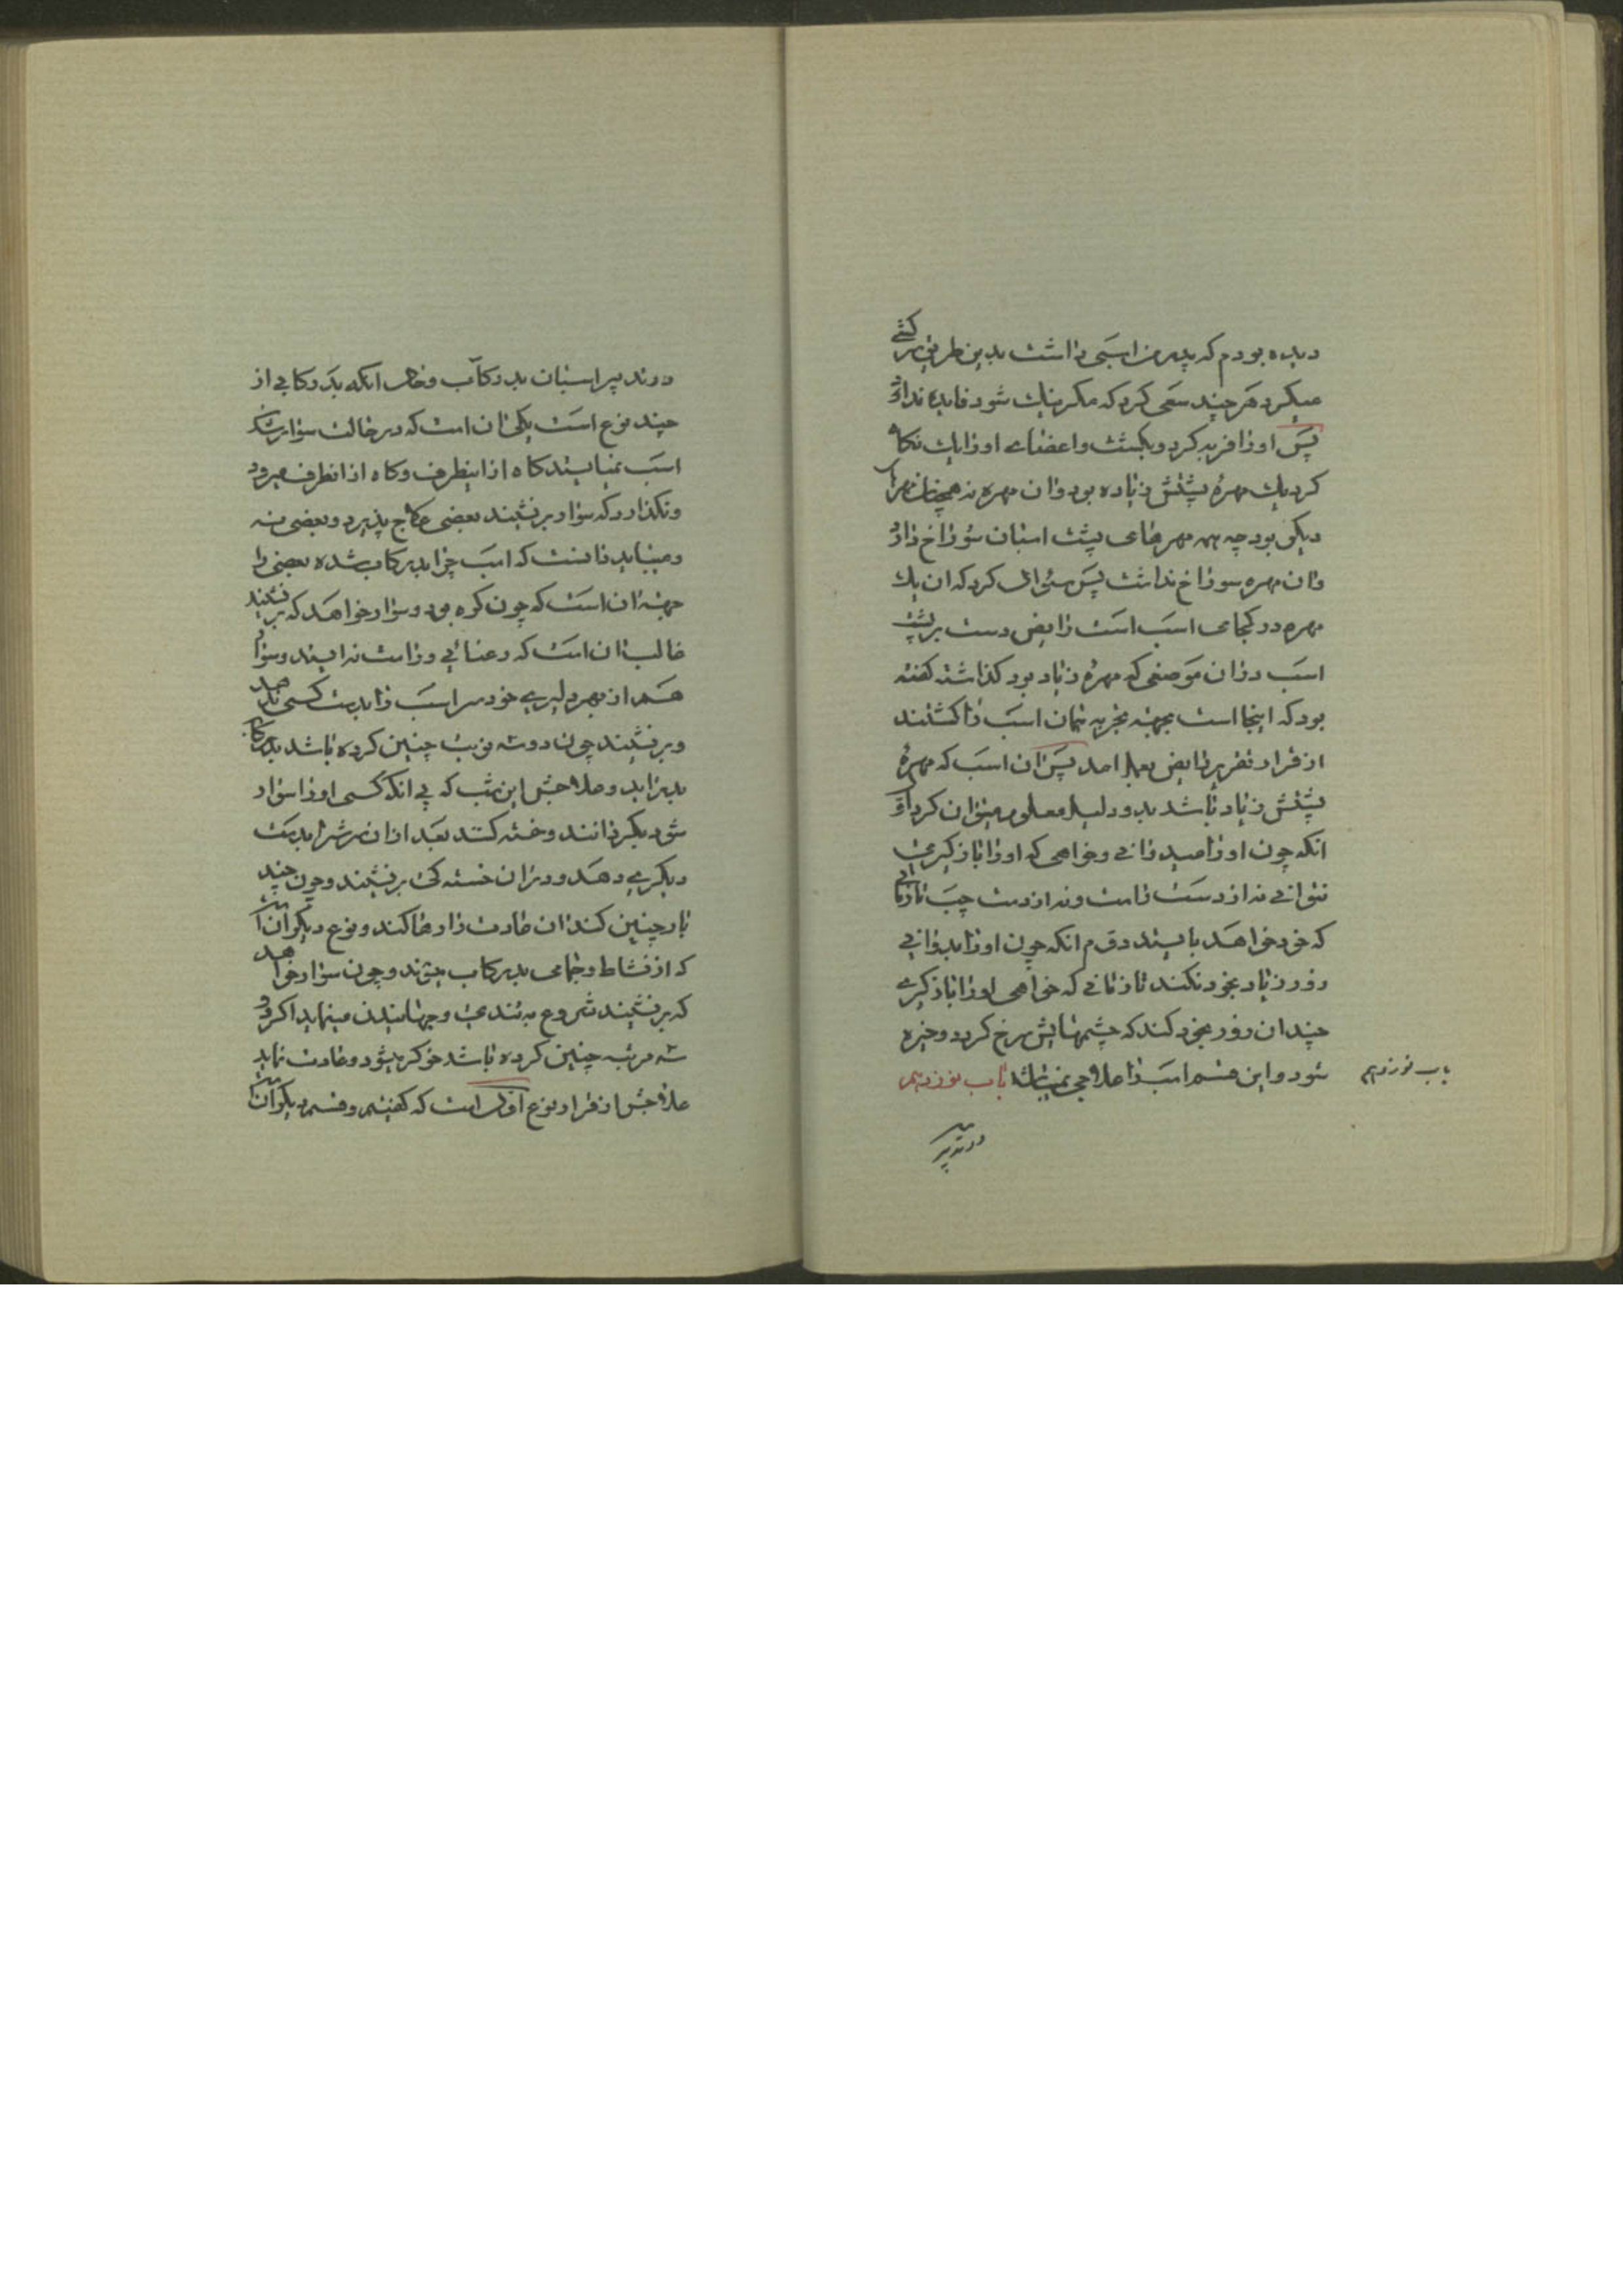 دیده بودم که پدر من اسبی داشت بدین طریق سرکشی
میکرد هر چند سعی کرد که مگر نیک شود فایده نداد و
پس او را فربه کرد و بکشت و اعضاے او را یک نگاه
کرد یک مهرهٔ پشتش زیاده بود و ان مهره نه همچنان مهرهاے
دیگر بود چه همه مهرهای پشت اسبان سوراخ دارد
و ان مهره سوراخ نداشت پس سئوال کرد که ان یک
مهره در کجای اسب است رایض دست بر پشت
اسب در ان موضعی که مهرهٔ زیاد بود گذاشته گفته
بود که اینجا است بجهته تجربه همان اسب را کشتند
از قرار تقریر رایض بعمل امد پس ان اسب که مهرهٔ
پشتش زیاد باشد بدو دلیل معلوم میتوان کرد اوّل
انکه چون او را میدوانے و خواهی که او را بازگیرے
نتوانے نه از دست راست و نه از دست چپ تا زمانی
که خود خواهد بایستد دوّم انکه چون او را بدوانے
زور زیاد بخود نکند تا زمانے که خواهی او را بازگیرے
چندان زور بخود کند که چشمهایش سرخ گردد و خیره
شود و این قسم اسب را علاجی نمیباشد باب نوزدهم
باب نوزدهم
در تدبیر
در تدبیر اسبان بد رکاب و حال انکه بد رکابے از
چند نوع است یکی ان است که در حالت سوار شدن
اسب نمیایستد گاه از اینطرف و گاه از انطرف میرود
و نگذارد که سوار بر نشیند بعضی علاج پذیرد و بعضی نه
و میباید دانست که اسب چرا بد رکاب شده بعضی را
جهته ان است که چون کره بود و سوار خواهد که بر نشیند
غالب ان است که رعنائے و راست نه ایستد و سوار
هم از بهر دلیرے خود سر اسب را بدست کسی ندهد
و بر نشیند چون دو سه نوبت چنین کرده باشد بد رکاب
بدر اید و علاجش این است که بے انکه کسی او را سوار
شود بگردانند و خسته کنند بعد از ان سرش را بدست
دیگرے دهد و در ان خسته گی بر نشیند و چون چند
بار چنین کند ان عادت را رها کند و نوع دیگر ان است
که از نشاط و خامی بد رکاب میشوند و چون سوار خواهد
که بر نشیند شروع به تندی و جهانیدن مینماید اگر دو
سه مرتبه چنین کرده باشد خوگر میشود و عادت نماید
علاجش از قرار نوع اوّل است که گفتیم و قسم دیگر ان است